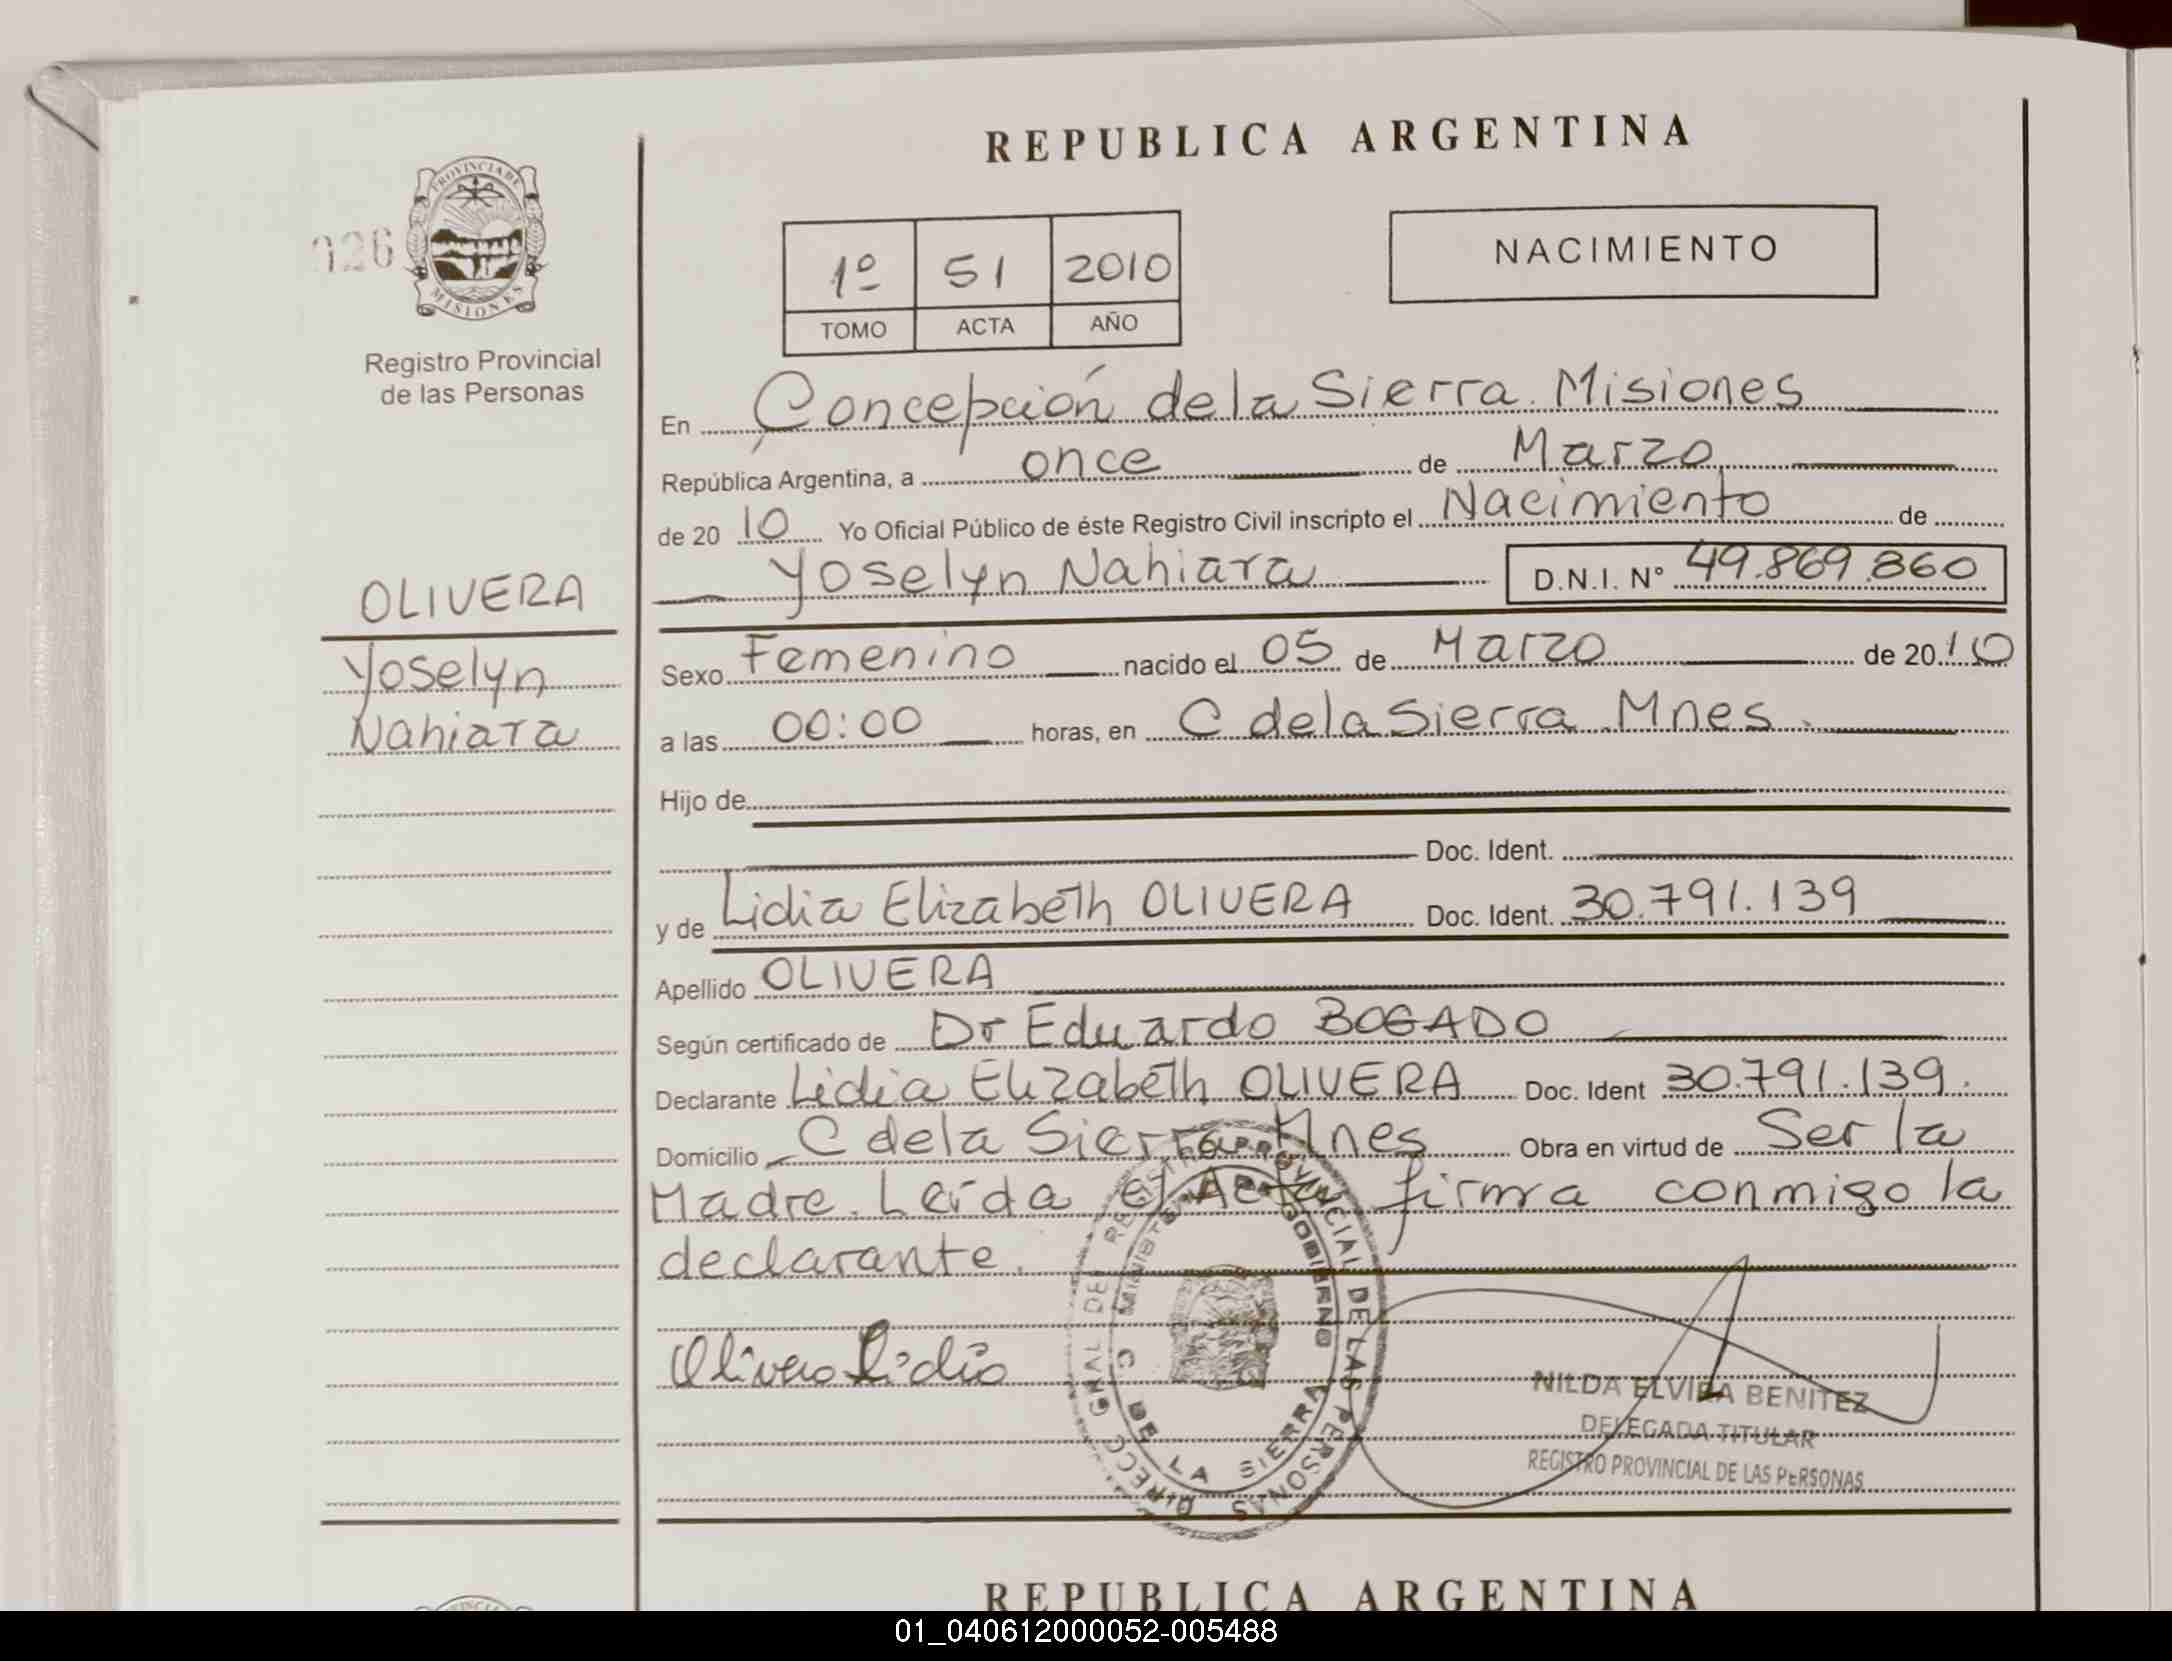 REPUBLICA ARGENTINA
026
PROVINCIA DE
MISIONES
Registro Provincial
de las Personas
1º 51 2010
TOMO ACTA AÑO
NACIMIENTO
En Concepción de la Sierra. Misiones
República Argentina, a once de Marzo
de 20 10 Yo Oficial Público de éste Registro Civil inscripto el Nacimiento de
Yoselyn Nahiara D.N.I. N° 49.869.860
OLIVERA
Yoselyn
Nahiara
Sexo Femenino nacido el 05 de Marzo de 20 10
a las 00:00 horas, en C de la Sierra. Mnes.
Hijo de
Doc. Ident.
y de Lidia Elizabeth OLIVERA Doc. Ident. 30.791.139
Apellido OLIVERA
Según certificado de Dr Eduardo BOGADO
Declarante Lidia Elizabeth OLIVERA Doc. Ident 30.791.139.
Domicilio C de la Sierra Mnes Obra en virtud de Ser la
Madre. Leída el Acta firma conmigo la
declarante.
Olivera Lidia
DIRECC GRAL DEL REGISTRO PROVINCIAL DE LAS PERSONAS
MINISTERIO DE GOBIERNO
C DE LA SIERRA
NILDA ELVIRA BENITEZ
DELEGADA TITULAR
REGISTRO PROVINCIAL DE LAS PERSONAS
REPUBLICA ARGENTINA
01_040612000052-005488